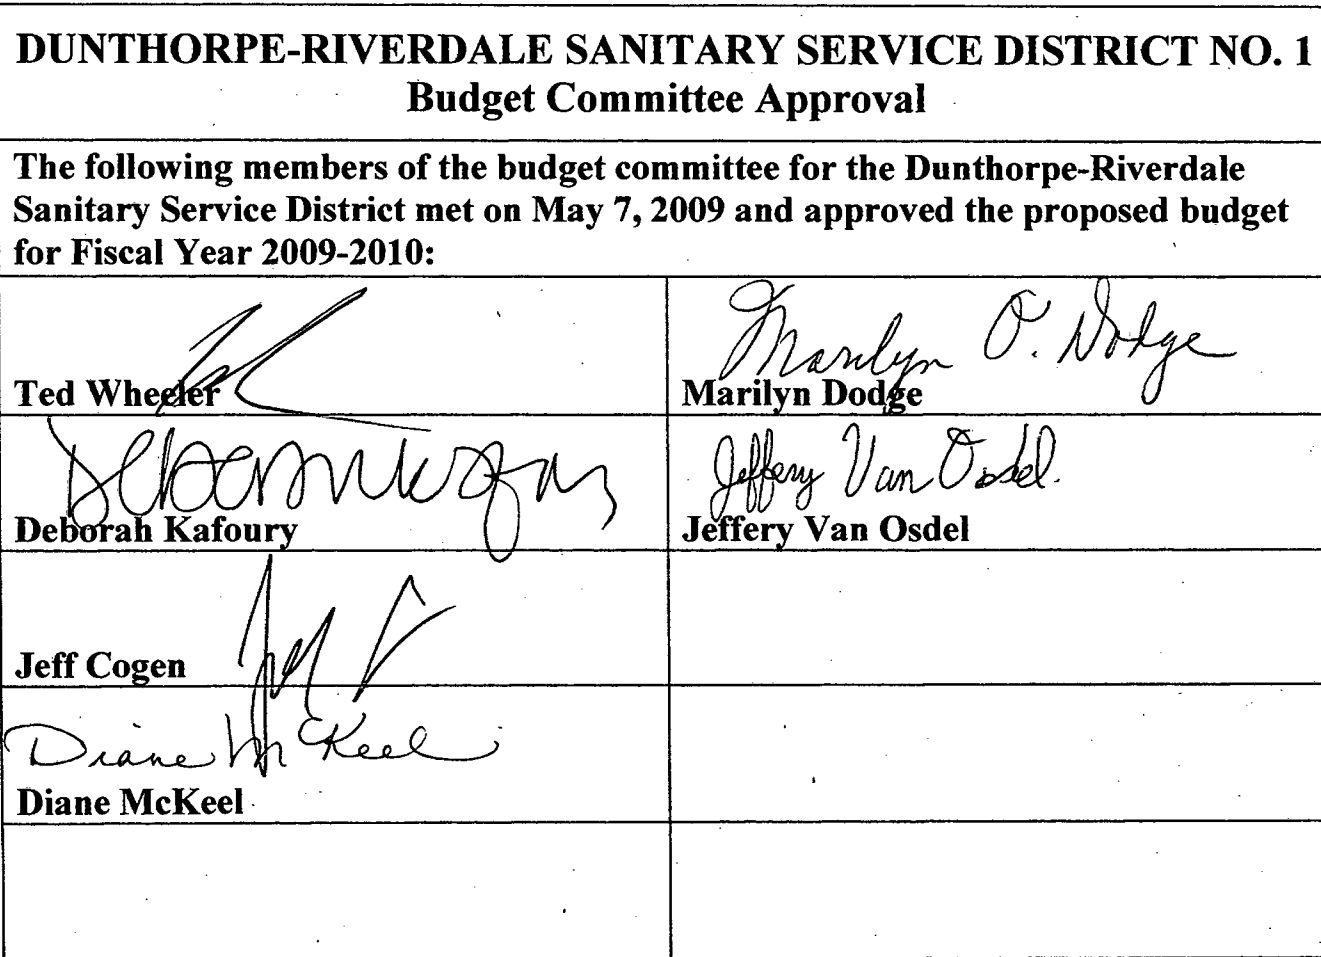 DUNTHORPE-RIVERDALE SANITARY SERVICE DISTRICT NO. 1
Budget Committee Approval
The following members of the budget committee for the Dunthorpe-Riverdale
Sanitary Service District met on May 7, 2009 and approved the proposed budget
for Fiscal Year 2009-2010:
Ted Wheeler
Marilyn O. Dodge
Marilyn Dodge
Deborah Kafoury
Jeffery Van Osdel
Jeffery Van Osdel
Jeff Cogen
Diane McKeel
Diane McKeel